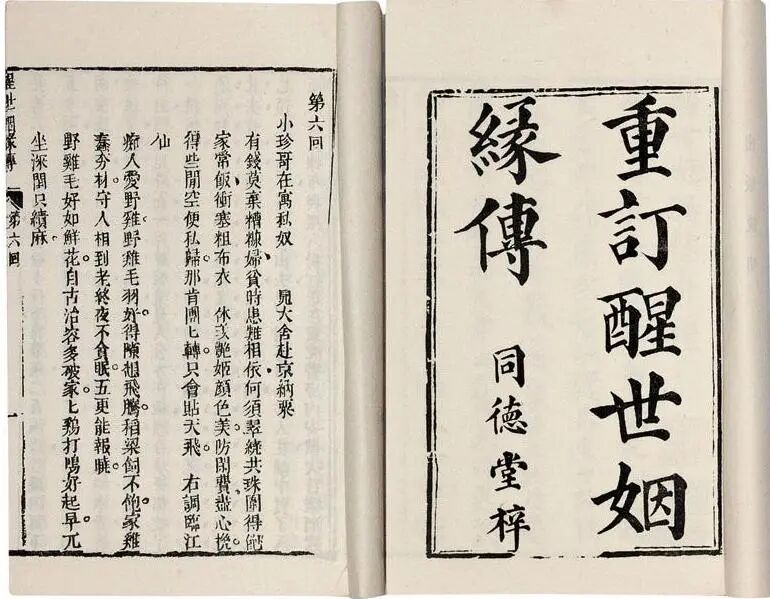 重訂醒世姻
緣傳
同德堂梓
第六回
小珍哥在寓私奴 晁大舍赴京納粟
有錢莫棄糟糠婦貧時患難相依何須翠繞共珠圍得飽
家常飯衝寒粗布衣 休羨艷姬顏色美防閑費盡心機
得些閒空便私歸那肯團匕轉只會貼天飛。 右調臨江
仙
痴人愛野雞野雞毛羽好得隴想飛騰。稻粱飼不飽家雞
蠢夯材守人相到老終夜不貪眠。五更能報曉。
野雞毛好如鮮花自古冶容多破家匕鷄打鳴好起早。兀
坐深閨只績麻。
醒世姻緣傳
第六回